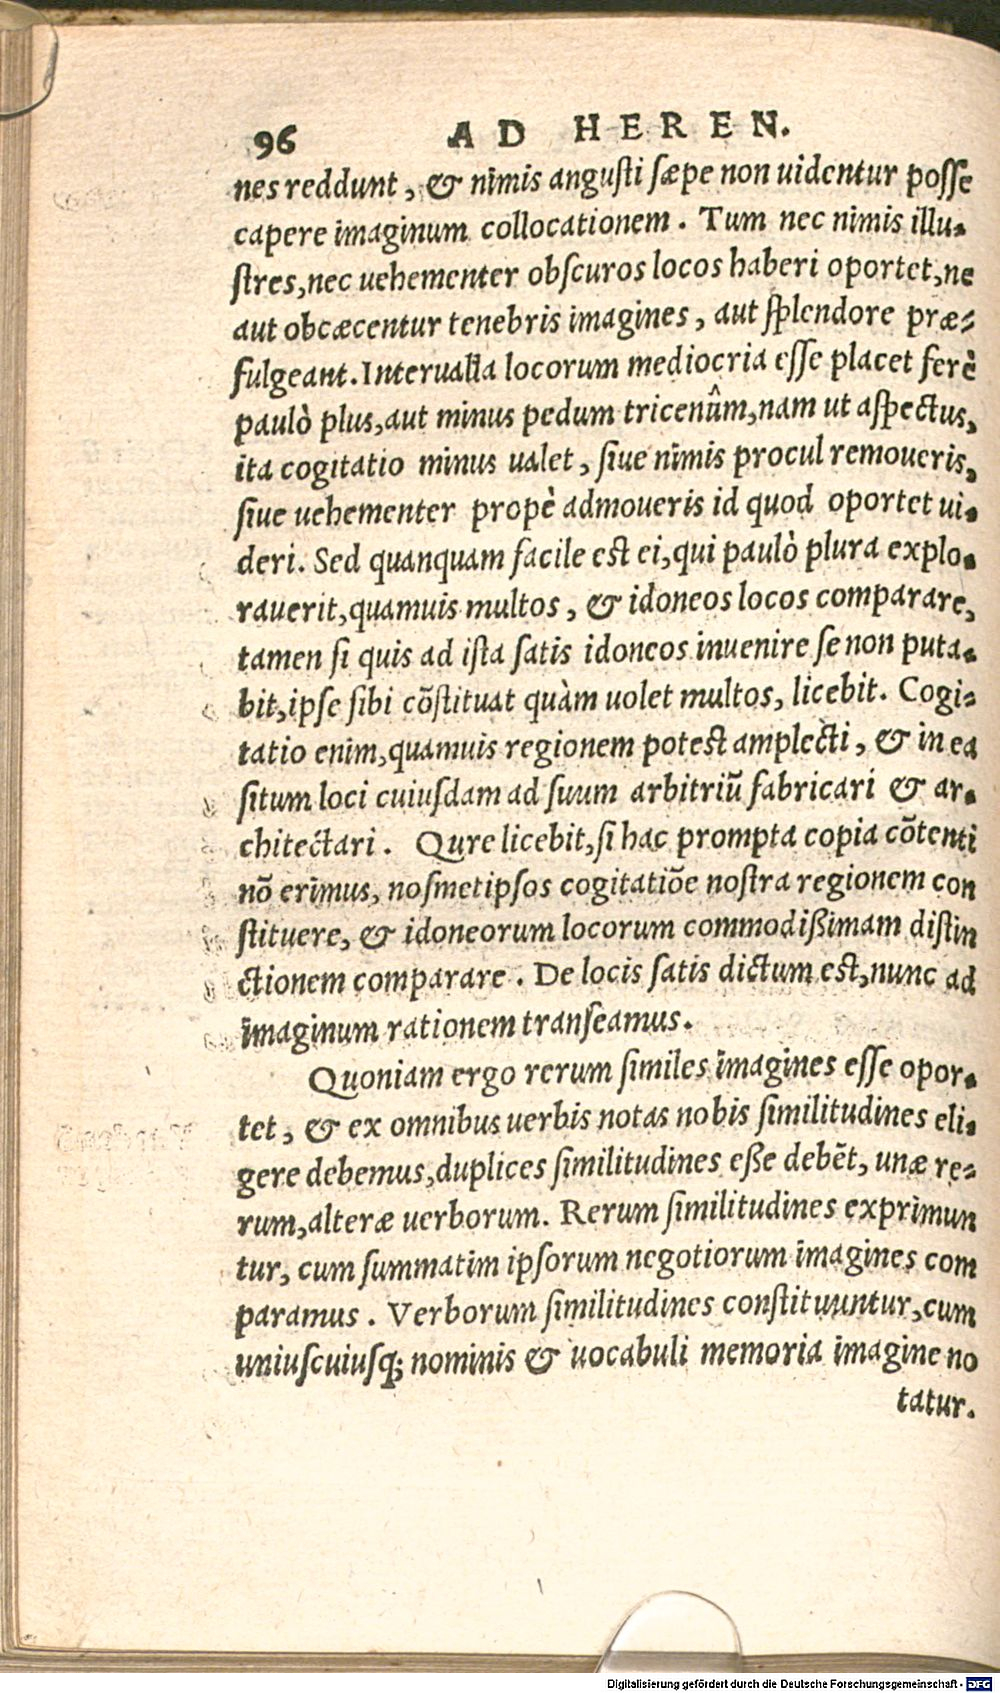 96 AD HEREN.
nes reddunt, & nimis angusti sæpe non uidentur posse
capere imaginum collocationem. Tum nec nimis illu-
stres, nec uehementer obscuros locos haberi oportet, ne
aut obcæcentur tenebris imagines, aut splendore præ-
fulgeant. Interualla locorum mediocria esse placet ferè
paulò plus, aut minus pedum tricenûm, nam ut aspectus,
ita cogitatio minus ualet, siue nimis procul remoueris,
siue uehementer propè admoueris id quod oportet ui-
deri. Sed quanquam facile est ei, qui paulò plura explo-
rauerit, quamuis multos, & idoneos locos comparare,
tamen si quis ad ista satis idoneos inuenire se non puta-
bit, ipse sibi cõstituat quàm uolet multos, licebit. Cogi-
tatio enim, quamuis regionem potest amplecti, & in ea
situm loci cuiusdam ad suum arbitriũ fabricari & ar-
chitectari. Qure licebit, si hac prompta copia cõtenti
nõ erimus, nosmetipsos cogitatiõe nostra regionem con
stituere, & idoneorum locorum commodißimam distin
ctionem comparare. De locis satis dictum est, nunc ad
imaginum rationem transeamus.
Quoniam ergo rerum similes imagines esse opor-
tet, & ex omnibus uerbis notas nobis similitudines eli-
gere debemus, duplices similitudines eße debẽt, unæ re-
rum, alteræ uerborum. Rerum similitudines exprimun
tur, cum summatim ipsorum negotiorum imagines com
paramus. Verborum similitudines constituuntur, cum
uniuscuiusq; nominis & uocabuli memoria imagine no
tatur.
Digitalisierung gefördert durch die Deutsche Forschungsgemeinschaft - DFG